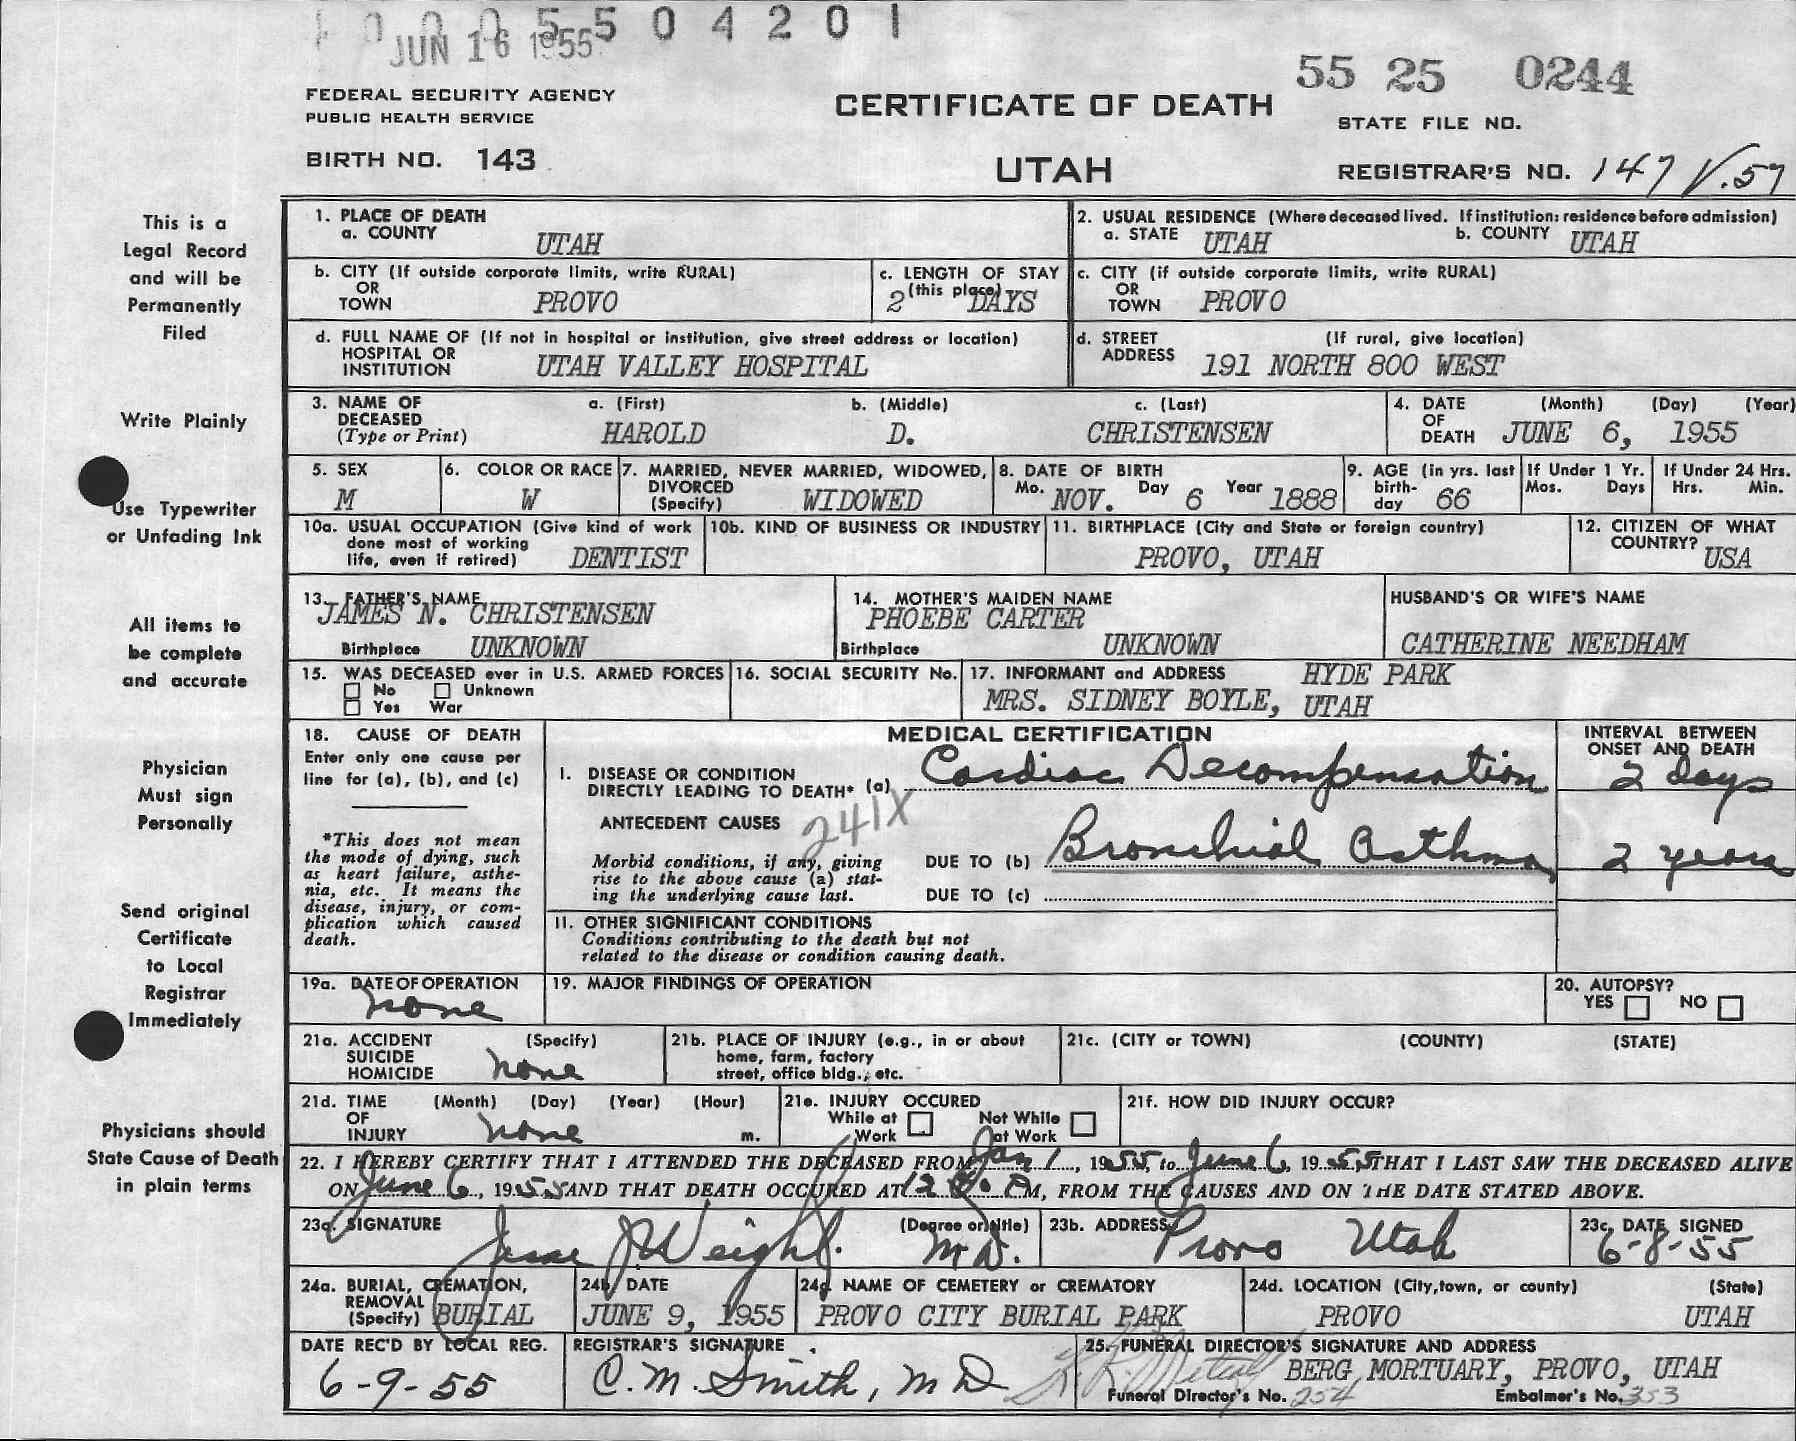 1 0 0 0 5 5 0 4 2 0 1
JUN 16 1955
55 25 0244
FEDERAL SECURITY AGENCY
PUBLIC HEALTH SERVICE
CERTIFICATE OF DEATH
STATE FILE NO.
BIRTH NO. 143
UTAH
REGISTRAR'S NO. 147 V.57
This is a
Legal Record
and will be
Permanently
Filed
Write Plainly
Use Typewriter
or Unfading Ink
All items to
be complete
and accurate
Physician
Must sign
Personally
Send original
Certificate
to Local
Registrar
Immediately
Physicians should
State Cause of Death
in plain terms
1. PLACE OF DEATH
a. COUNTY UTAH
2. USUAL RESIDENCE (Where deceased lived. If institution: residence before admission)
a. STATE UTAH b. COUNTY UTAH
b. CITY (If outside corporate limits, write RURAL)
OR
TOWN PROVO
c. LENGTH OF STAY
(this place)
2 DAYS
c. CITY (if outside corporate limits, write RURAL)
OR
TOWN PROVO
d. FULL NAME OF (If not in hospital or institution, give street address or location)
HOSPITAL OR
INSTITUTION UTAH VALLEY HOSPITAL
d. STREET (If rural, give location)
ADDRESS 191 NORTH 800 WEST
3. NAME OF a. (First) b. (Middle) c. (Last)
DECEASED
(Type or Print) HAROLD D. CHRISTENSEN
4. DATE (Month) (Day) (Year)
OF
DEATH JUNE 6, 1955
5. SEX
M
6. COLOR OR RACE
W
7. MARRIED, NEVER MARRIED, WIDOWED,
DIVORCED
(Specify) WIDOWED
8. DATE OF BIRTH
Mo. NOV. Day 6 Year 1888
9. AGE (in yrs. last
birth-
day 66
If Under 1 Yr.
Mos. Days
If Under 24 Hrs.
Hrs. Min.
10a. USUAL OCCUPATION (Give kind of work
done most of working
life, even if retired) DENTIST
10b. KIND OF BUSINESS OR INDUSTRY
11. BIRTHPLACE (City and State or foreign country)
PROVO, UTAH
12. CITIZEN OF WHAT
COUNTRY?
USA
13. FATHER'S NAME
JAMES N. CHRISTENSEN
Birthplace UNKNOWN
14. MOTHER'S MAIDEN NAME
PHOEBE CARTER
Birthplace UNKNOWN
HUSBAND'S OR WIFE'S NAME
CATHERINE NEEDHAM
15. WAS DECEASED ever in U.S. ARMED FORCES
No Unknown
Yes War
16. SOCIAL SECURITY No.
17. INFORMANT and ADDRESS HYDE PARK
MRS. SIDNEY BOYLE, UTAH
18. CAUSE OF DEATH
Enter only one cause per
line for (a), (b), and (c)
*This does not mean
the mode of dying, such
as heart failure, asthe-
nia, etc. It means the
disease, injury, or com-
plication which caused
death.
MEDICAL CERTIFICATION
INTERVAL BETWEEN
ONSET AND DEATH
I. DISEASE OR CONDITION
DIRECTLY LEADING TO DEATH* (a) Cardiac Decompensation 2 days
ANTECEDENT CAUSES 241X
Morbid conditions, if any, giving
rise to the above cause (a) stat-
ing the underlying cause last.
DUE TO (b) Bronchial Asthma 2 years
DUE TO (c)
II. OTHER SIGNIFICANT CONDITIONS
Conditions contributing to the death but not
related to the disease or condition causing death.
19a. DATE OF OPERATION
none
19. MAJOR FINDINGS OF OPERATION
20. AUTOPSY?
YES NO
21a. ACCIDENT (Specify)
SUICIDE
HOMICIDE none
21b. PLACE OF INJURY (e.g., in or about
home, farm, factory
street, office bldg., etc.
21c. (CITY or TOWN) (COUNTY) (STATE)
21d. TIME (Month) (Day) (Year) (Hour)
OF
INJURY none m.
21e. INJURY OCCURED
While at Work Not While at Work
21f. HOW DID INJURY OCCUR?
22. I HEREBY CERTIFY THAT I ATTENDED THE DECEASED FROM Jan 1, 1955, to June 6, 1955, THAT I LAST SAW THE DECEASED ALIVE
ON June 6, 1955 AND THAT DEATH OCCURED AT 12 PM, FROM THE CAUSES AND ON THE DATE STATED ABOVE.
23a. SIGNATURE (Degree or title)
Jesse J Weight. M.D.
23b. ADDRESS
Provo Utah
23c. DATE SIGNED
6-8-55
24a. BURIAL, CREMATION,
REMOVAL
(Specify) BURIAL
24b. DATE
JUNE 9, 1955
24c. NAME OF CEMETERY or CREMATORY
PROVO CITY BURIAL PARK
24d. LOCATION (City, town, or county) (State)
PROVO UTAH
DATE REC'D BY LOCAL REG.
6-9-55
REGISTRAR'S SIGNATURE
C.M. Smith, MD
25. FUNERAL DIRECTOR'S SIGNATURE AND ADDRESS
BERG MORTUARY, PROVO, UTAH
Funeral Director's No. 254 Embalmer's No. 353